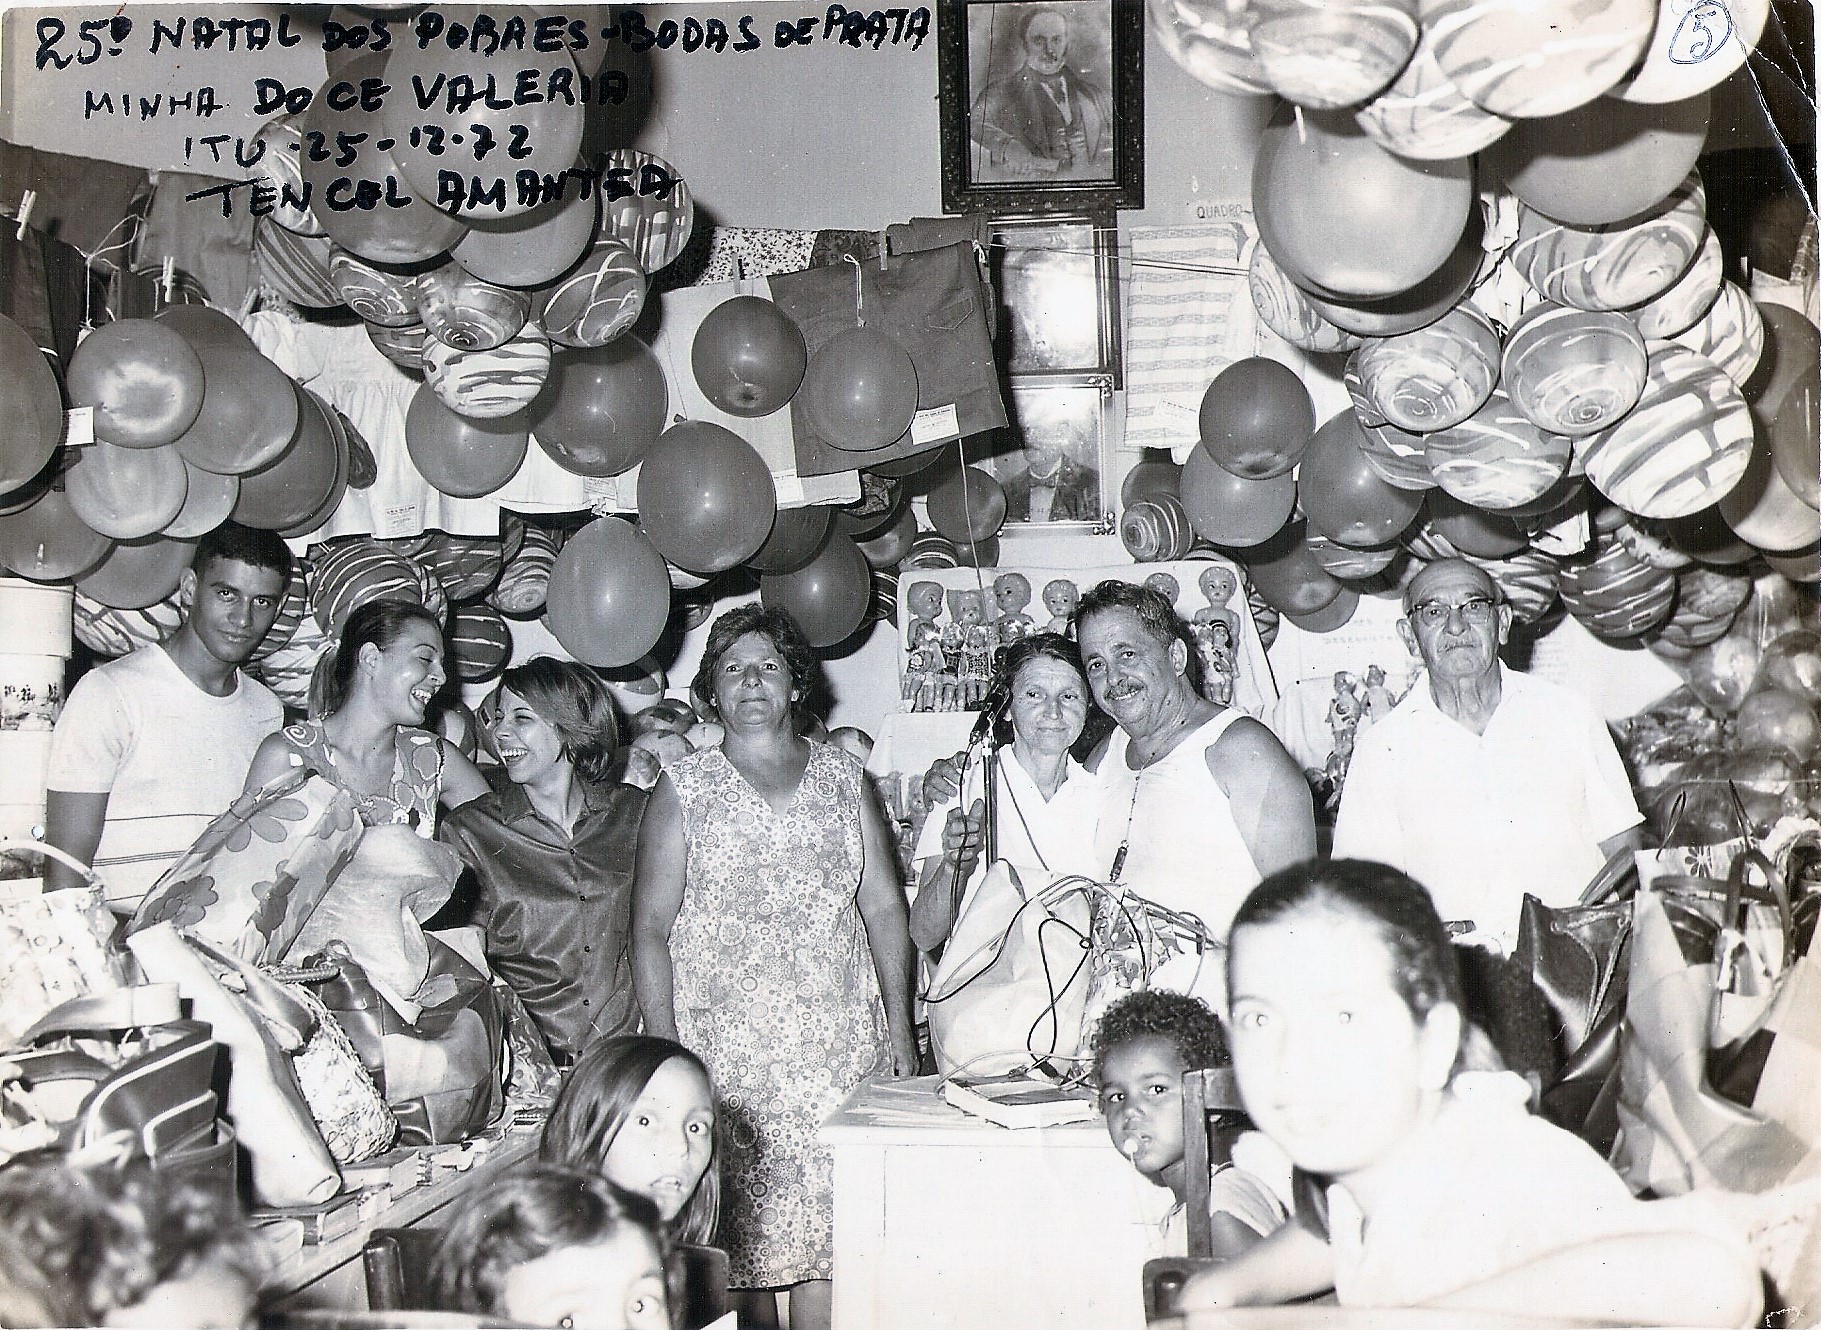 25º NATAL DOS POBRES - BODAS DE PRATA
MINHA DOCE VALERIA
ITU - 25 - 12 - 72
TEN CEL AMANTEA
5
QUADRO